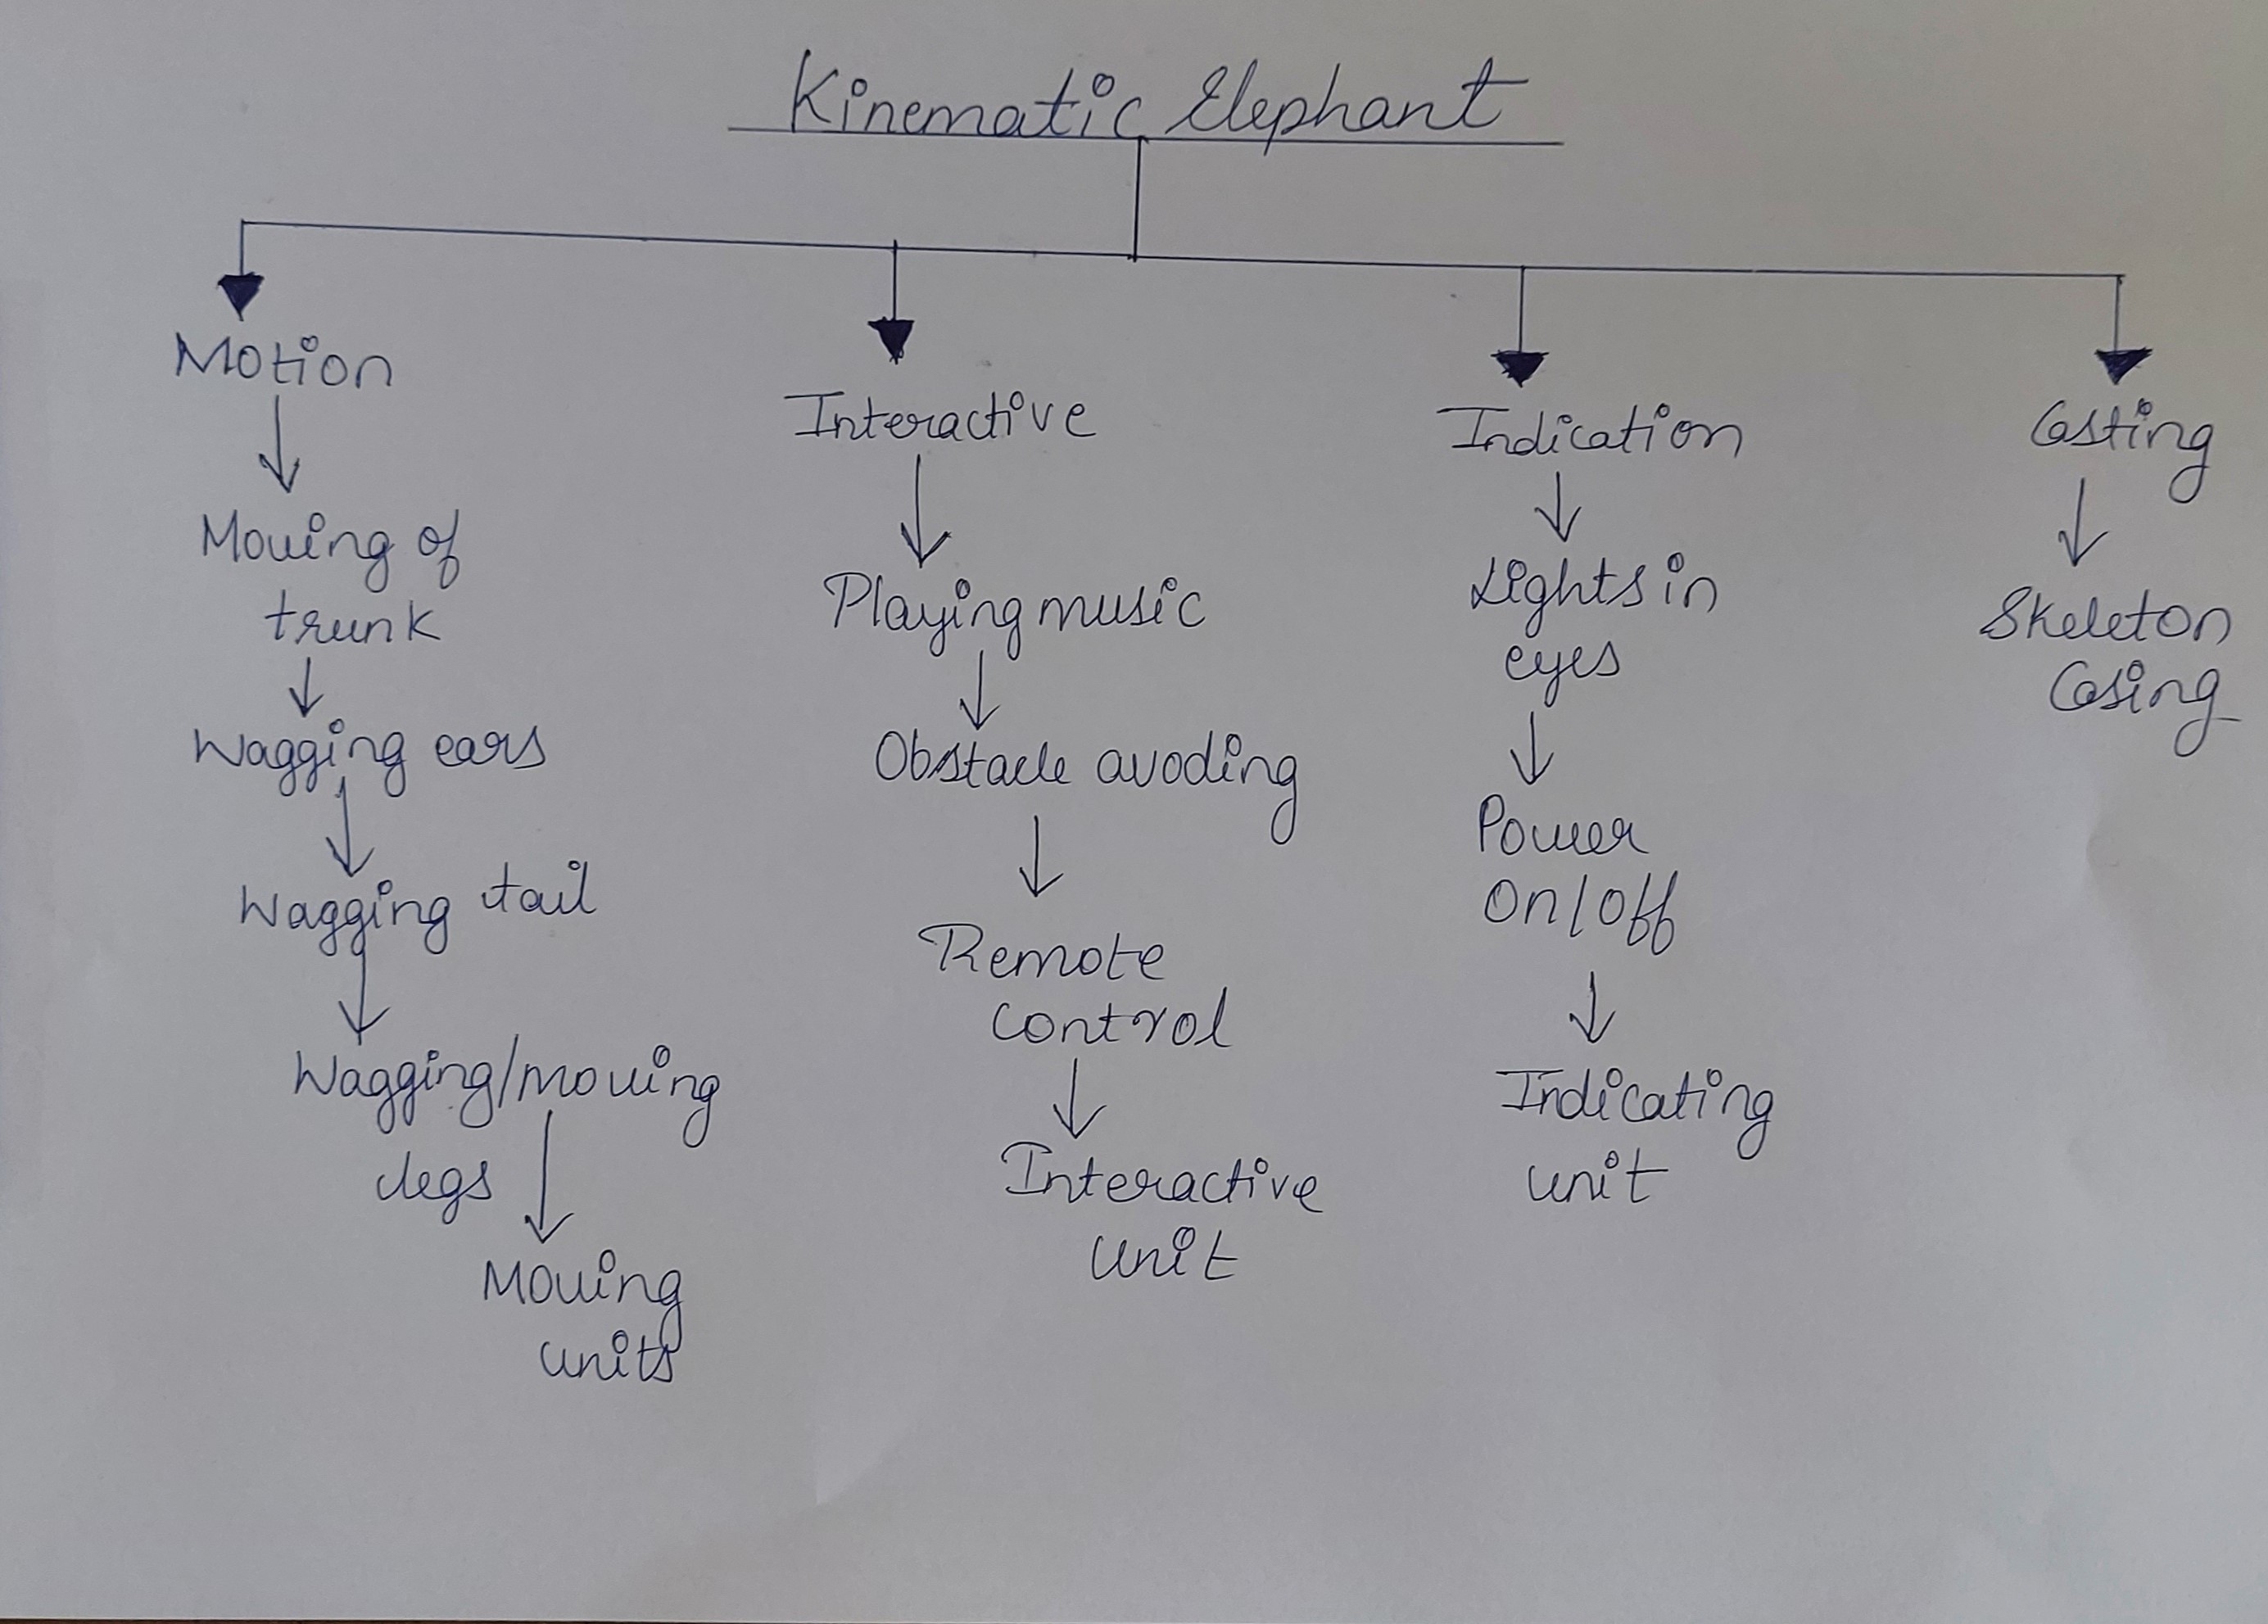 Kinematic Elephant
Motion
Moving of
trunk
Wagging ears
Wagging tail
Wagging/moving
legs
Moving
units
Interactive
Playing music
Obstacle avoding
Remote
control
Interactive
unit
Indication
Lights in
eyes
Power
On/off
Indicating
unit
Casting
Skeleton
Casing